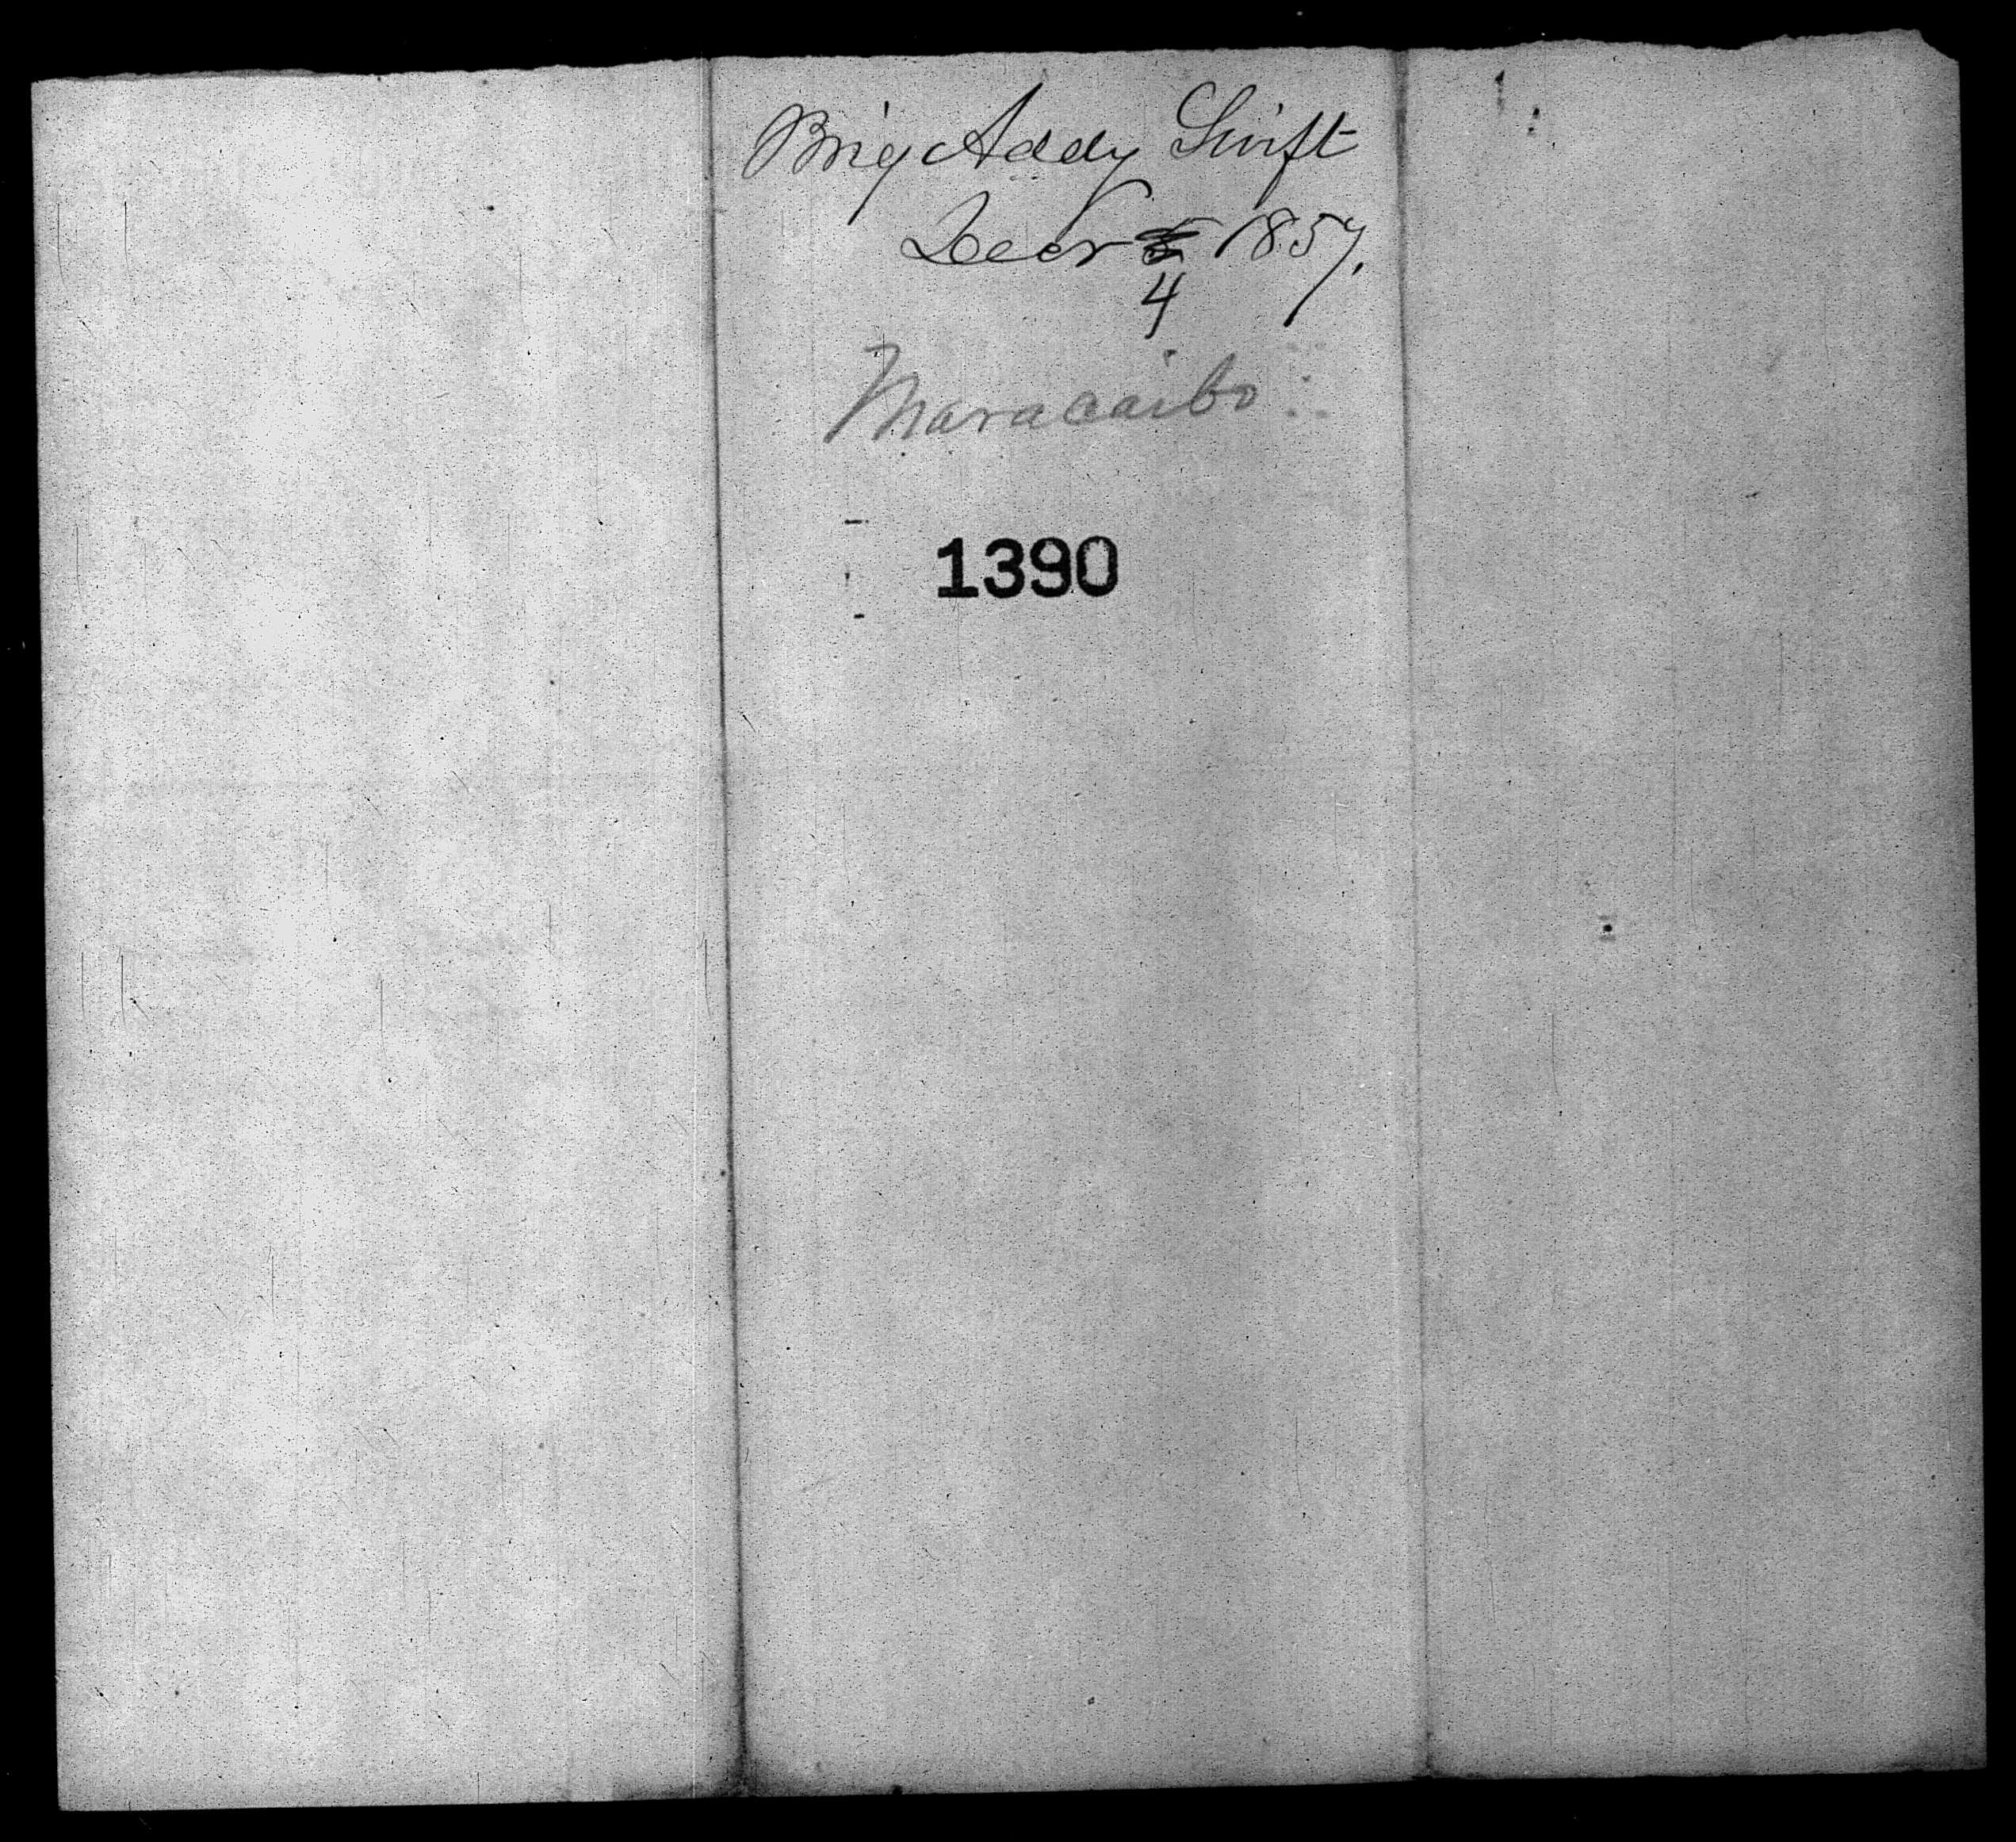 Brig Addy Swift
Decr 1857.
4
Maracaibo
1390